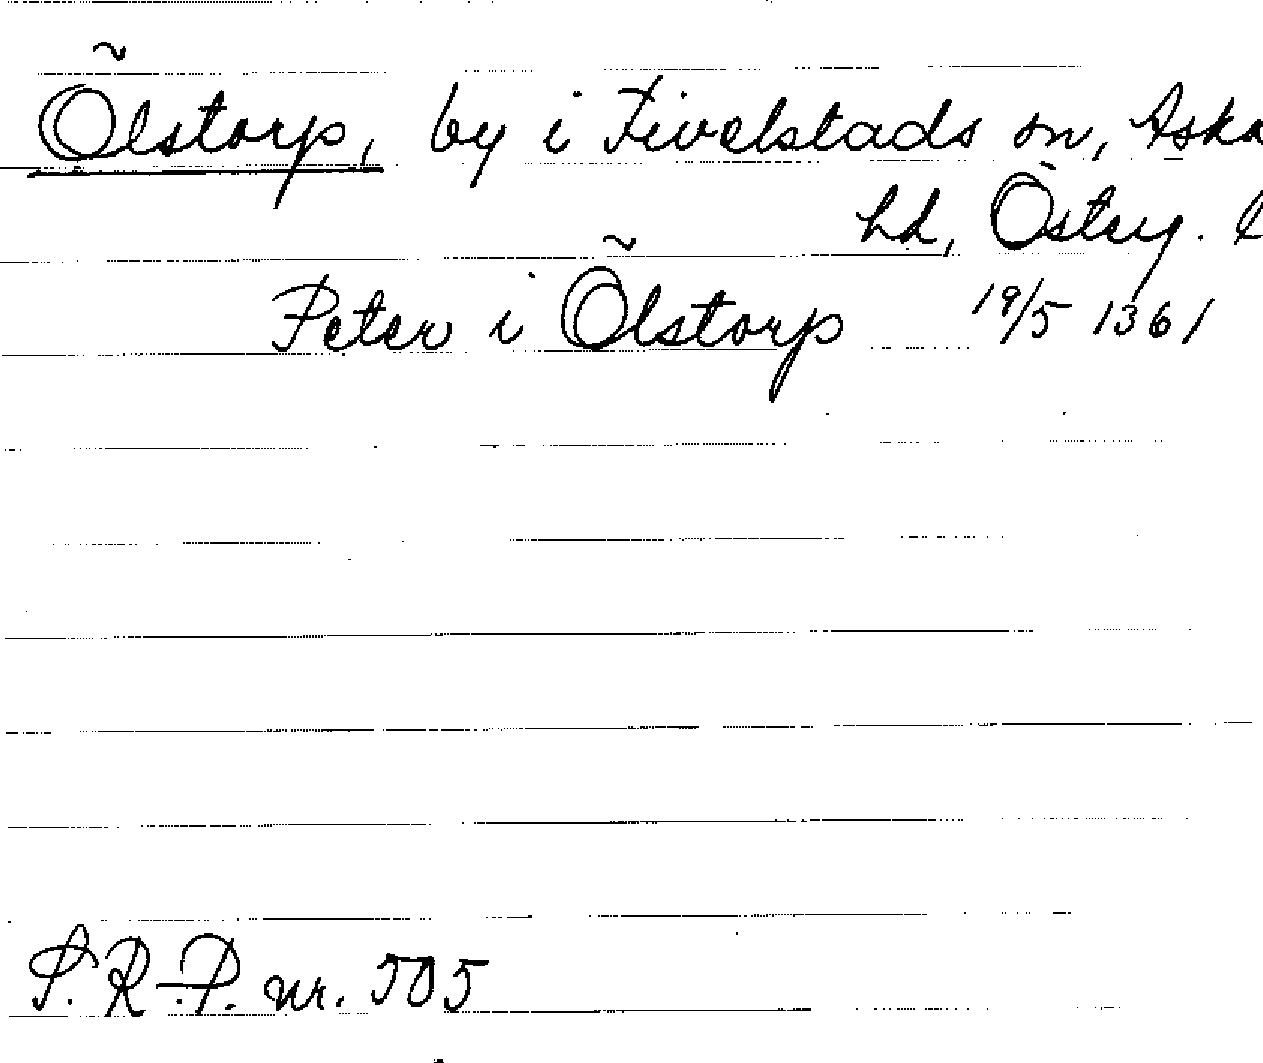 Õlstorp, by i Fivelstads sn, Aska
hd, Österg.
Peter i Õlstorp 19/5 1361
S.R.-P. nr. 505